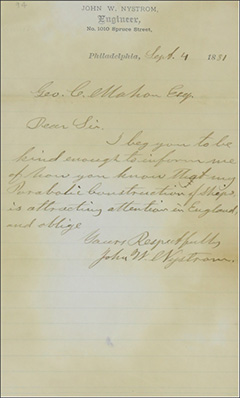 JOHN W. NYSTROM,
Engineer,
No. 1010 Spruce Street,
Philadelphia, Sept. 4 1881
Geo. C. Mahon Esq.
Dear Sir.
I beg you to be
kind enough to inform me
of how you know that my
Parabolic Construction of Ships
is attracting attention in England,
and oblige
Yours Respectfully
John W. Nystrom.